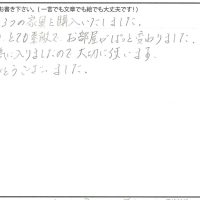 お書き下さい。(一言でも文章でも絵でも大丈夫です!)
3つの家具を購入いたしました。
とても素敵で お部屋がぱっと変わりました。
気に入りましたので 大切に使います
とうございました。